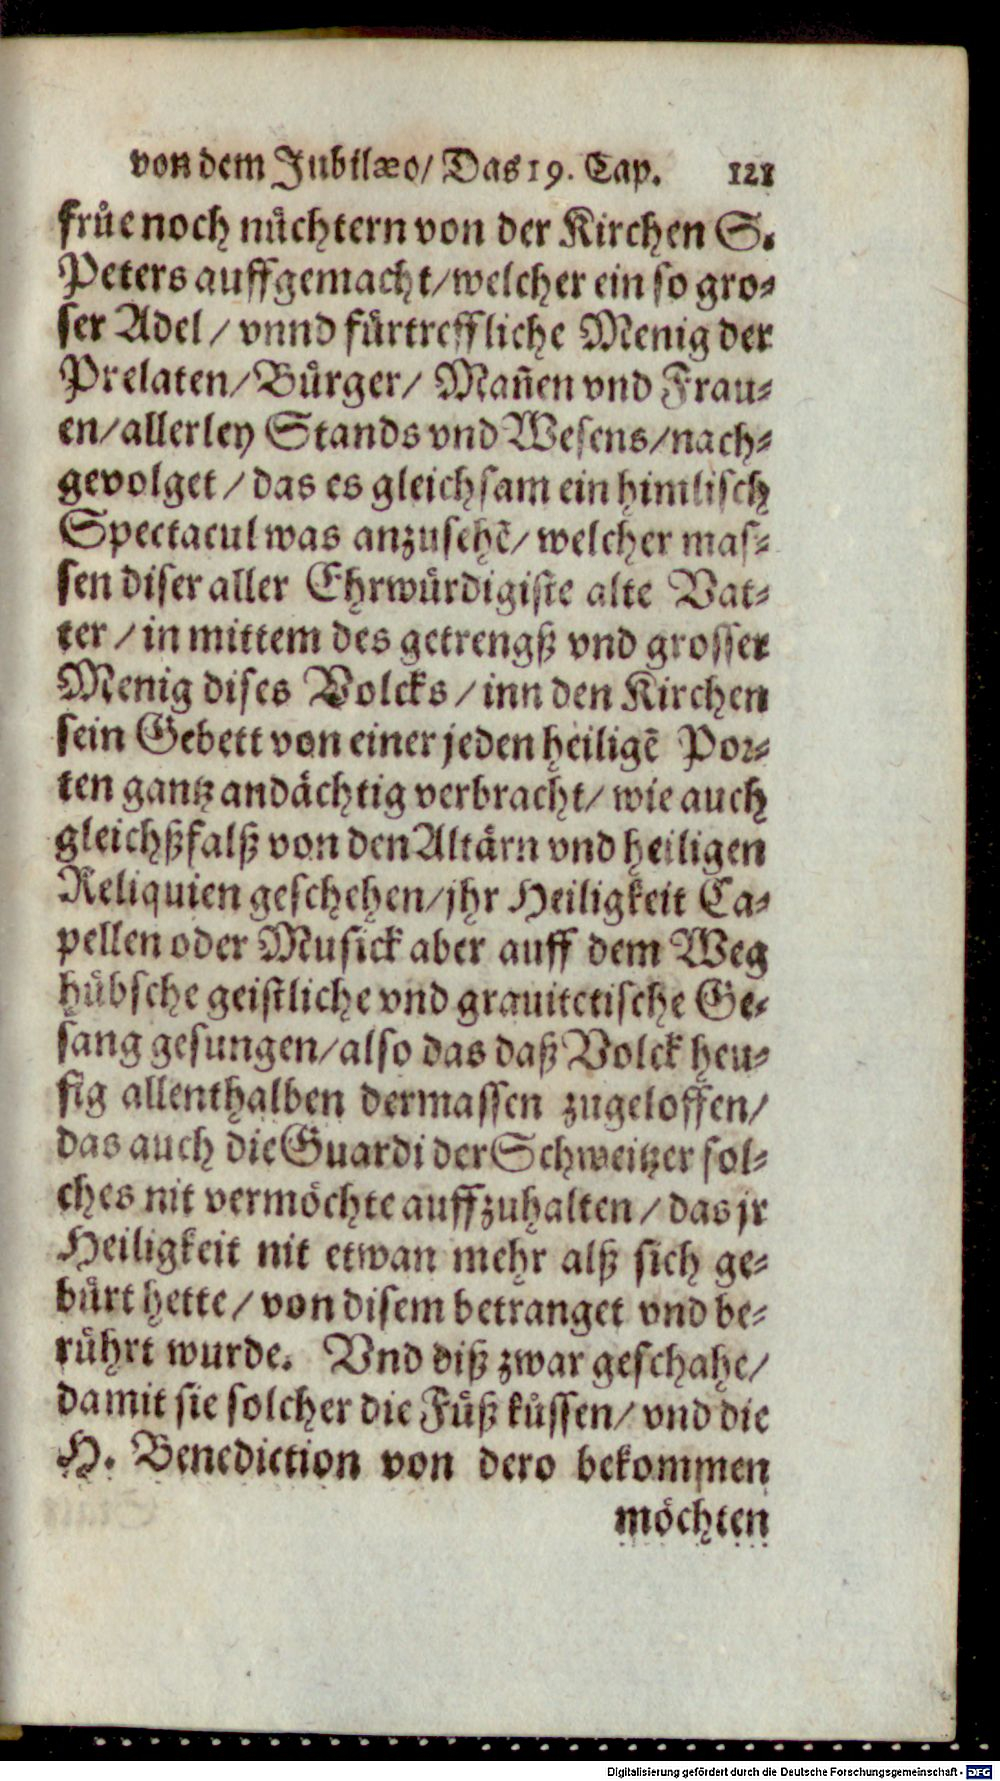 von dem Jubilæo/ Das 19. Cap. 121
fruͤe noch nuͤchtern von der Kirchen S.
Peters auffgemacht/welcher ein so gro-
ser Adel/ vnnd fuͤrtreffliche Menig der
Prelaten/Buͤrger/ Mañen vnd Frau-
en/allerley Stands vnd Wesens/nach-
gevolget/das es gleichsam ein himlisch
Spectacul was anzusehẽ/ welcher mas-
sen diser aller Ehrwuͤrdigiste alte Vat-
ter/in mittem des getrengß vnd grosser
Menig dises Volcks/inn den Kirchen
sein Gebett von einer jeden heiligẽ Por-
ten gantz andaͤchtig verbracht/ wie auch
gleichßfalß von den Altaͤrn vnd heiligen
Reliquien geschehen/jhr Heiligkeit Ca-
pellen oder Musick aber auff dem Weg
huͤbsche geistliche vnd grauitetische Ge-
sang gesungen/also das daß Volck heu-
fig allenthalben dermassen zugeloffen/
das auch die Guardi der Schweitzer sol-
ches nit vermoͤchte auffzuhalten/das jr
Heiligkeit nit etwan mehr alß sich ge-
buͤrt hette/ von disem betranget vnd be-
ruͤhrt wurde. Vnd diß zwar geschahe/
damit sie solcher die Fuͤß kuͤssen/ vnd die
H. Benediction von dero bekommen
moͤchten
Digitalisierung gefördert durch die Deutsche Forschungsgemeinschaft - DFG